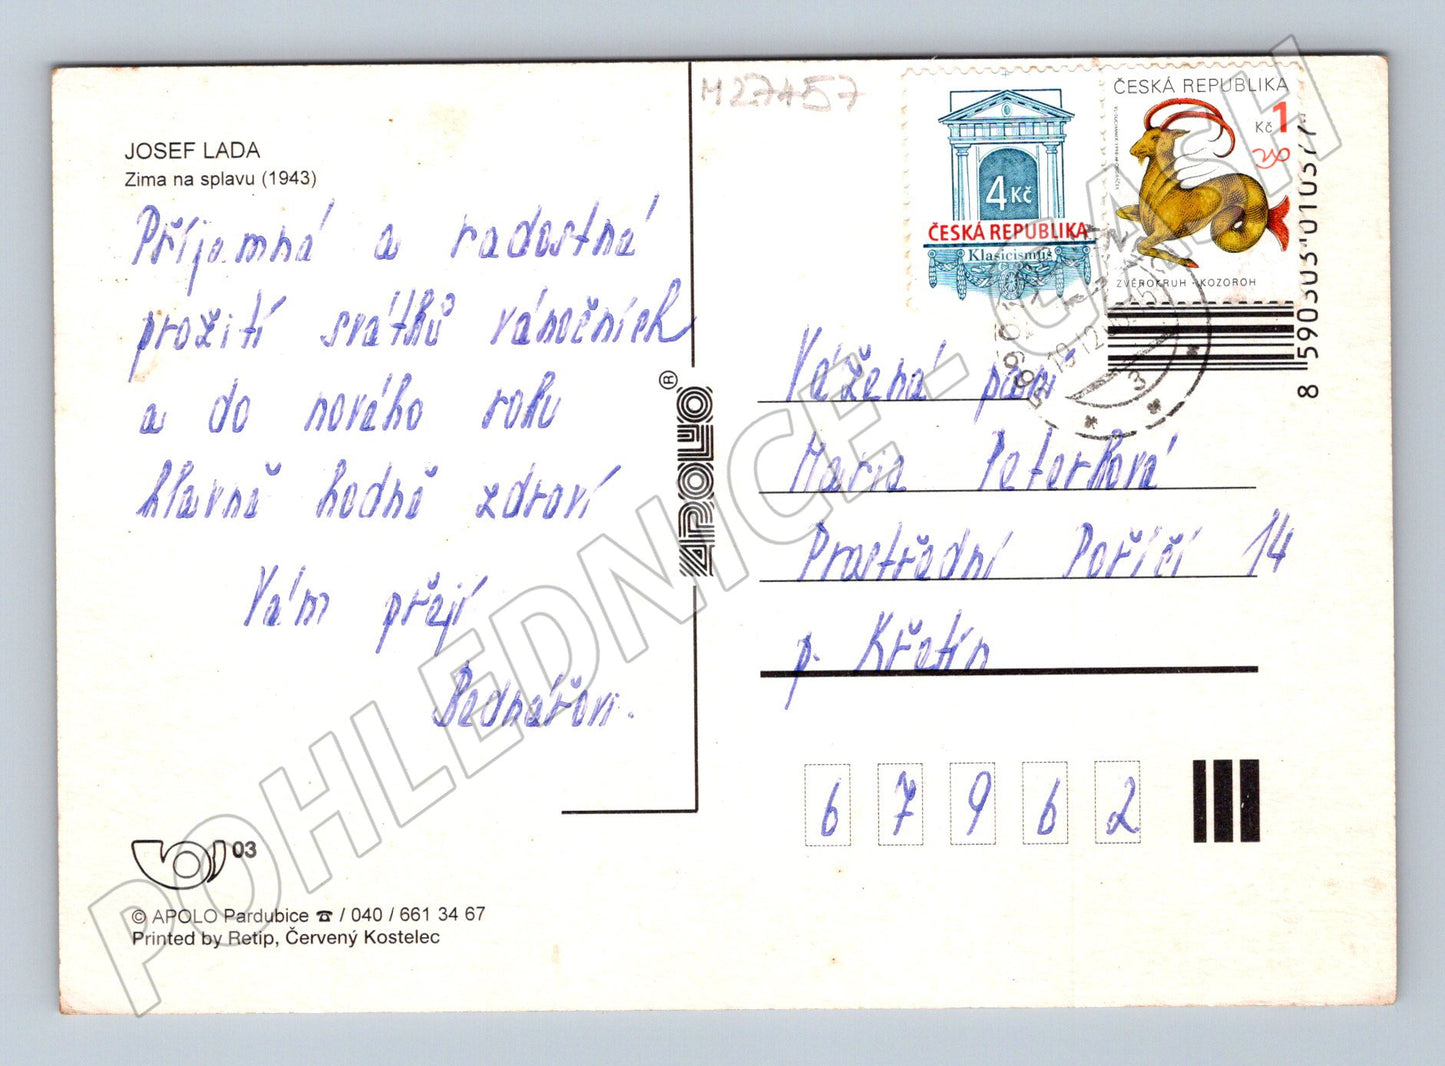 JOSEF LADA
Zima na splavu (1943)
Příjemná a radostná
prožití svátků vánočních
a do nového roku
hlavně hodně zdraví
Vám přejí
Bednářovi.
03
© APOLO Pardubice ☎ / 040 / 661 34 67
Printed by Retip, Červený Kostelec
APOLO ®
M27457
4 Kč
ČESKÁ REPUBLIKA
Klasicismus
ČESKÁ REPUBLIKA
Kč 1
ZVĚROKRUH • KOZOROH
8 590303 010377
3
Vážená paní
Maria Peterková
Prostřední Poříčí 14
p. Křetín
67962
POHLEDNICE - CASH